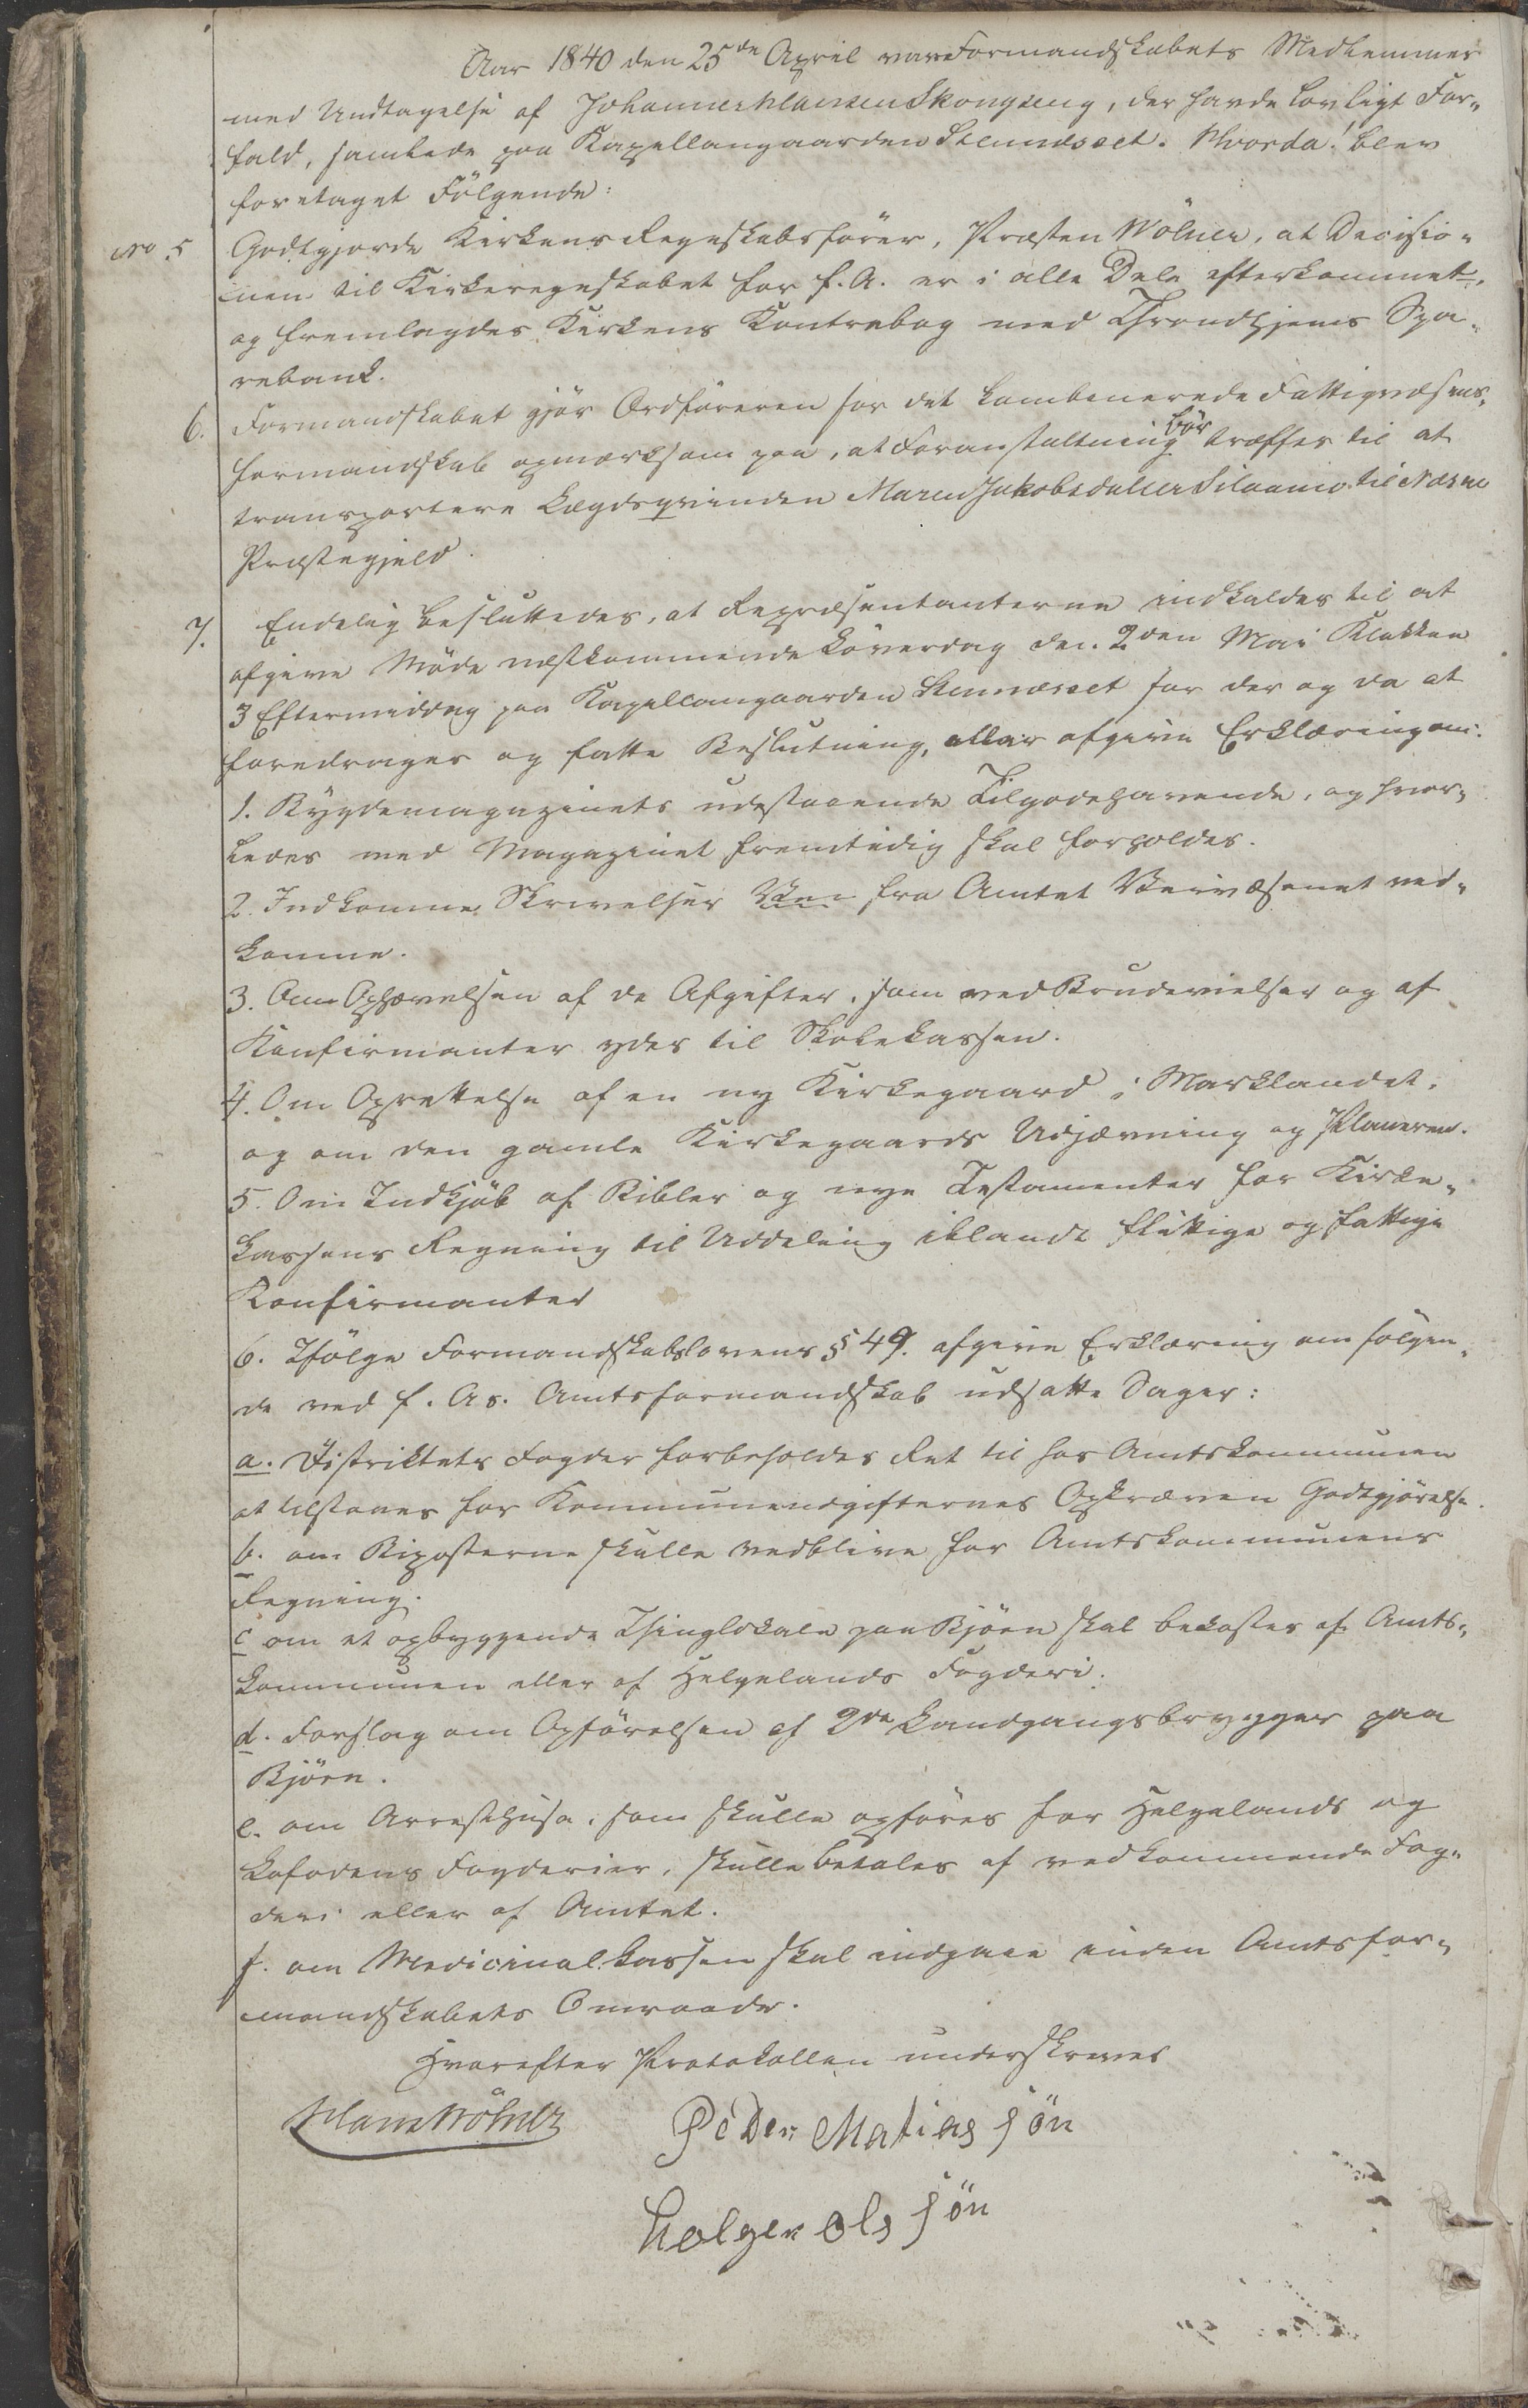 Aar 1840 den 25de April vare Formandskabets Medlemmer
med Undtagelse af Johannes Klausen Skongseng, der havde lovligt For„
fald, samlede paa Kapellangaarden Stennæset. Hvorda! blev
foretaget Fölgende:
No. 5 Godtgjorde Kirkens Regnskabsförer, Præsten Wölner, at Decisio„
nen til Kirkeregnskabet for f. A. er i alle Dele efterkommet,
og fremlagdes Kirkens Kontrabog med Throndhjems Spa„
rebank.
6. Formandskabet gjör Ordföreren for det kombinerede Fattigvæsens„
formandskab opmærksom paa, at Foranstaltning bör træffes til at
transportere Lægdsqvinden Maren Jakobsdatter til Næsne
Præstegjeld.
7. Endelig besluttedes, at Repræsentanterne indkaldes til at
afgive Möde næstkommende Löverdag den 2den Mai Klokken
3 Eftermiddag paa Kapellangaarden Stennæset for der og da at
foredrages og fatte Beslutning, eller afgive Erklæring om:
1. Bygdemagazinets udestaaende Tilgodehavende, og hvor„
ledes med Magazinet fremtidig skal forholdes.
2. Indkomne Skrivelser fra Amtet Veivæsenet ved„
komme.
3. Om Ophævelsen af de Afgifter, som ved Brudevielser og af
Konfirmanter ydes til Skolekassen.
4. Om Oprettelse af en ny Kirkegaard i Marklandet,
og om den gamle Kirkegaards Udjævning og Planeren.
5. Om Indkjöb af Bibler og nye Testamenter for Kirke„
kassens Regning til Uddeling iblandt flittige og fattige
Konfirmanter
6. Ifölge Formandskabslovens § 49. afgive Erklæring om fölgen„
de ved f. As. Amtsformandskab udsatte Sager:
a. Distriktets Fogder forbeholdes Ret til hos Amtskommunen
at tilstaaes for Kommuneudgifternes Opkræven Godtgjörelse.
b. om Biposterne skulle vedblive for Amtskommunens
Regning.
c om et opbyggende Thinglokale paa Bjørn skal bekostes af Amts„
kommunen eller af Helgelands Fogderi.
d. Forslag om Opförelsen af 2de Landgangsbrygger paa
Bjørn.
e. om Arresthuse, som skulle opföres for Helgelands og
Lofodens Fogderier, skulle betales af vedkommende Fog„
deri eller af Amtet.
f. om Medicinalkassen skal indgaae inden Amtsfor„
mandskabets Omraade.
Hvorefter Protokollen underskreves
Hans Wölner Peder Matias sön
Holger ols sön